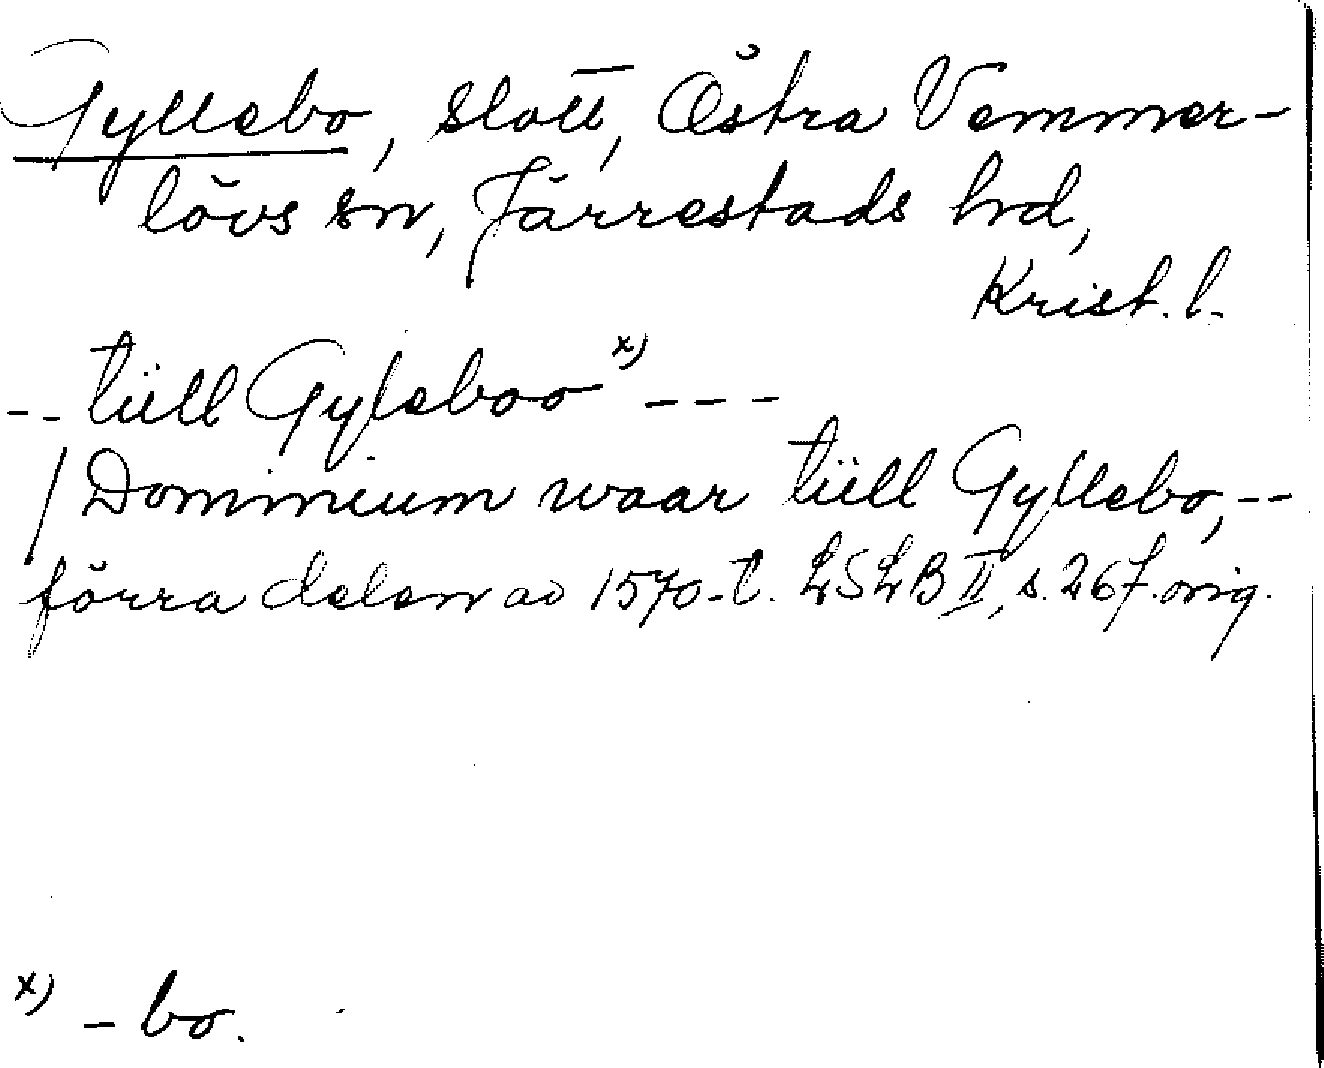 Gyllebo, slott, Östra Vemmer-
lövs sn, Järrestads hd,
Krist. l.
-- tüll Gyleboo x) ---
/ Dominium waar tüll Gyllebo, --
förra delen av 1570-t. LSLB II, s. 267. orig.
x) - bo.